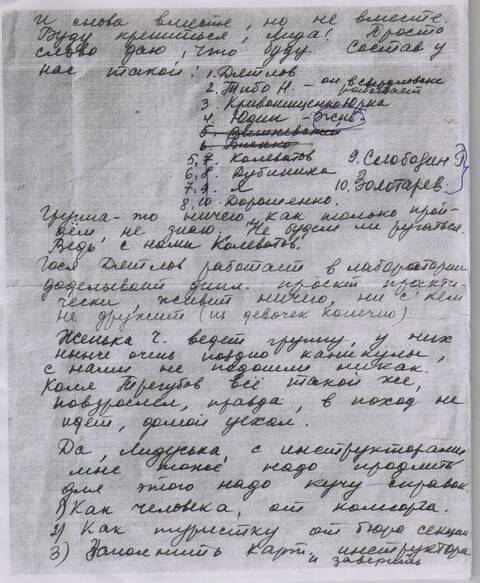 И снова вместе, но не вместе.
Буду крепиться, Лида! Просто
слово даю, что буду. Состав у
нас такой: 1. Дятлов
2. Тибо Н. – он в Свердловске
работает
3. Кривонищенко Юрка
4. Юдин –
5. Вишневский
6. Биенко
5, 7. Колеватов 9. Слободин Р.
6, 8. Дубинина 10. Золотарев.
7, 9. Я
8, 10. Дорошенко.
Группа-то ничего, как только прой-
дём, не знаю. Не будем ли ругаться.
Ведь, с нами Колеватов.
Гося Дятлов работает в лаборатории
доделывает дипл. проект практи-
чески, живет ничего, ни с кем
не дружит (из девочек конечно)
Женька Ч. ведет группу, у них
нынче очень поздно каникулы,
с нами не подошли никак.
Коля Трегубов всё такой же,
повзрослел, правда, в поход не
идет, домой уехал.
Да, Лидуська, с инструкторами
мне тоже надо продлить
для этого надо кучу справок.
1) Как человека, от комсорга.
2) Как туристку от бюро секции
3) Заполнить карт. инструктора
и заверить